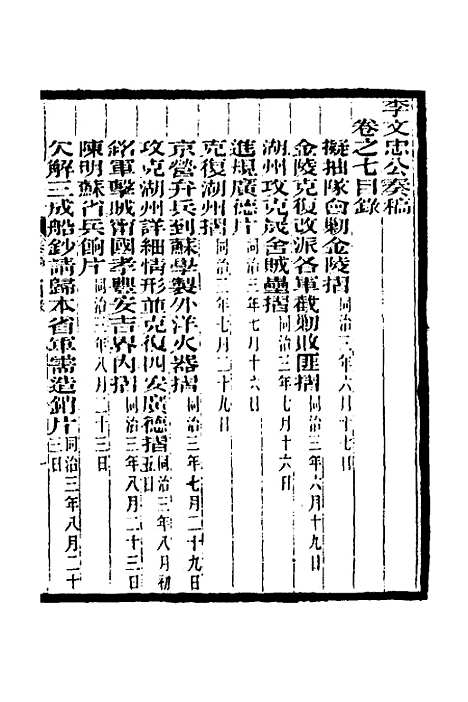 李文忠公奏稿
卷之七目錄
擬抽隊會勦金陵摺同治三年六月十七日
金陵克復改派各軍截勦敗匪摺同治三年六月十九日
湖州攻克晟舍賊壘摺同治三年七月十六日
進規廣德片同治三年七月十六日
克復湖州摺同治三年七月二十九日
京營弁兵到蘇學製外洋火器摺同治三年七月二十九日
攻克湖州詳細情形並克復四安廣德摺同治三年八月初五日
銘軍擊賊甯國孝豐安吉界內摺同治三年八月二十三日
陳明蘇省兵餉片同治三年八月二十三日
欠解三成船鈔請歸本省軍需造銷片同治三年八月二十三日